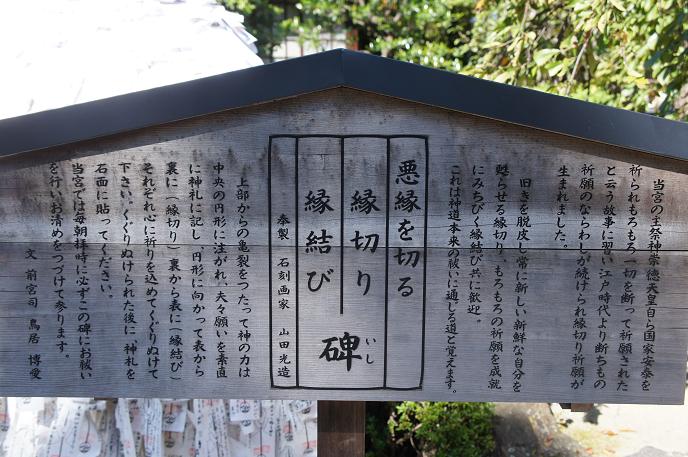 当宮の主祭神崇徳天皇自ら国家安泰を
祈られもろもろ一切を断って祈願された
と云う故事に習い江戸時代より断ちもの
祈願のならわしが続けられ縁切り祈願が
生まれました。
旧きを脱皮し常に新しい新鮮な自分を
甦らせる縁切り、もろもろの祈願を成就
にみちびく縁結び共に歓迎。
これは神道本来の祓いに通じる道と覚えます。
悪縁を切る
縁切り
縁結び
碑
いし
奉製 石刻画家 山田光造
上部からの亀裂をつたって神の力は
中央の円形に注がれ、夫々願いを素直
に神札に記し、円形に向かって表から
裏に（縁切り）裏から表に（縁結び）
それぞれ心に祈りを込めてくぐりぬけて
下さい。くぐりぬけられた後に、神札を
石面に貼ってください。
当宮では毎朝拝時に必ずこの碑にお祓い
を行い、お清めをつづけて参ります。
文 前宮司 鳥居 博愛